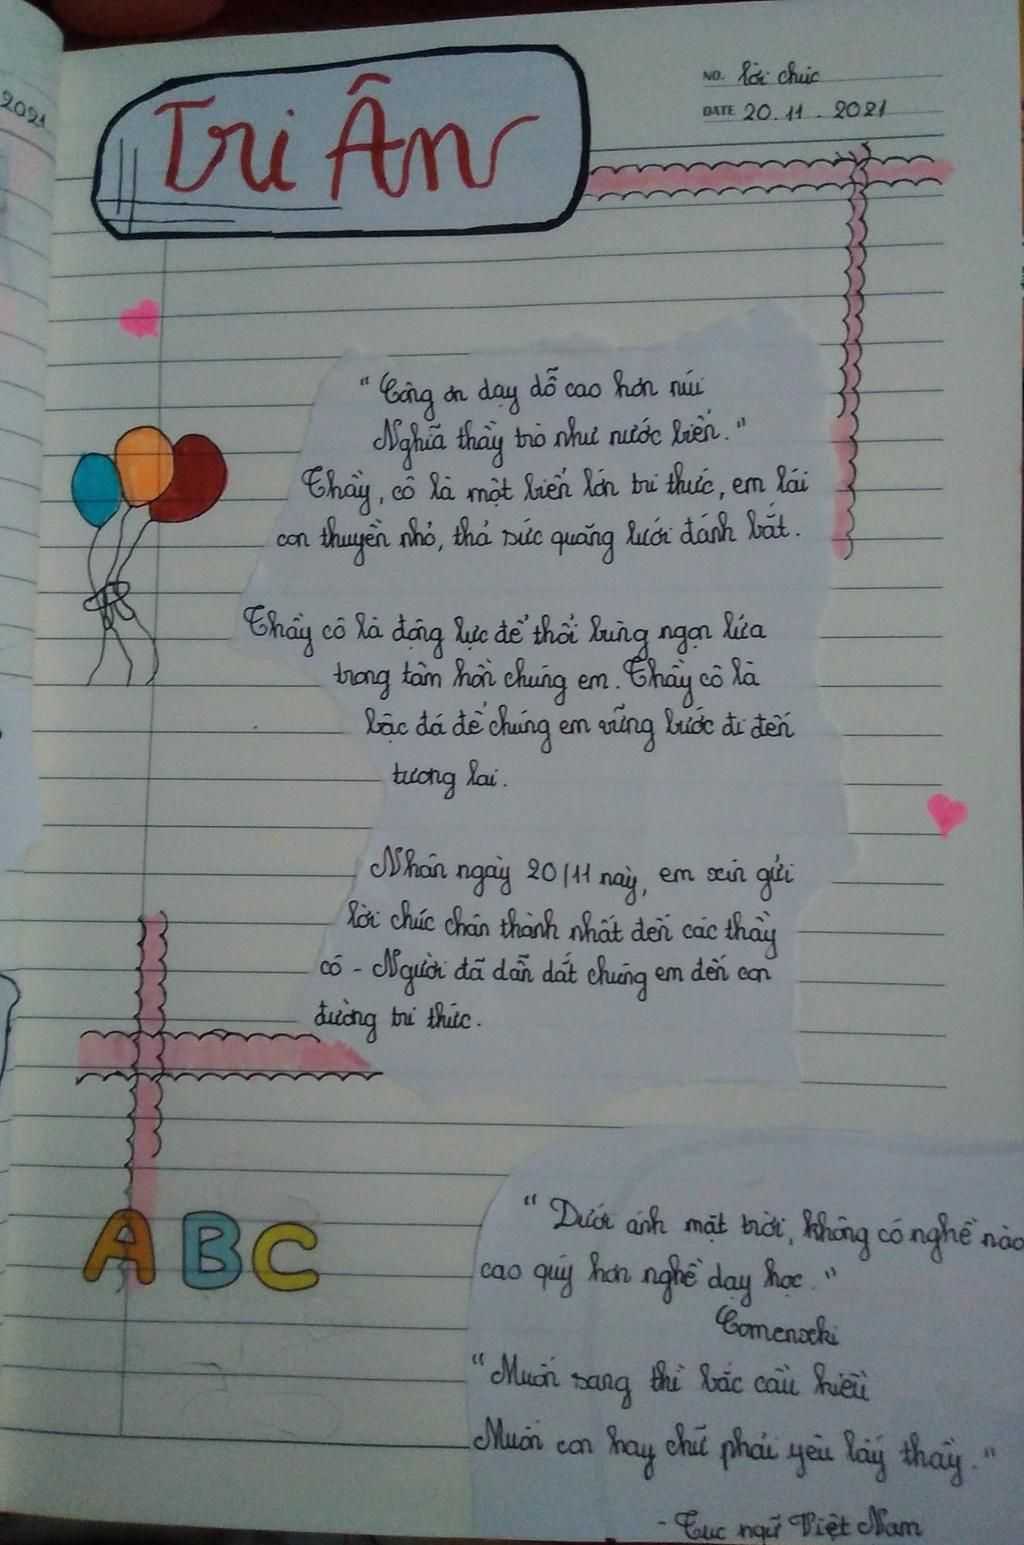 2021
Tri Ân
NO. lời chúc
DATE 20.11.2021
"Công ơn dạy dỗ cao hơn núi
Nghĩa thầy trò như nước biển."
Thầy, cô là một biển lớn tri thức, em lái
con thuyền nhỏ, thả sức quăng lưới đánh bắt.
Thầy cô là động lực để thổi bùng ngọn lửa
trong tâm hồn chúng em. Thầy cô là
bậc đá để chúng em vững bước đi đến
tương lai.
Nhân ngày 20/11 này, em xin gửi
lời chúc chân thành nhất đến các thầy
cô - Người đã dẫn dắt chúng em đến con
đường tri thức.
A B C
"Dưới ánh mặt trời, không có nghề nào
cao quý hơn nghề dạy học."
Comenxki
"Muốn sang thì bắc cầu kiều
Muốn con hay chữ phải yêu lấy thầy."
- Tục ngữ Việt Nam